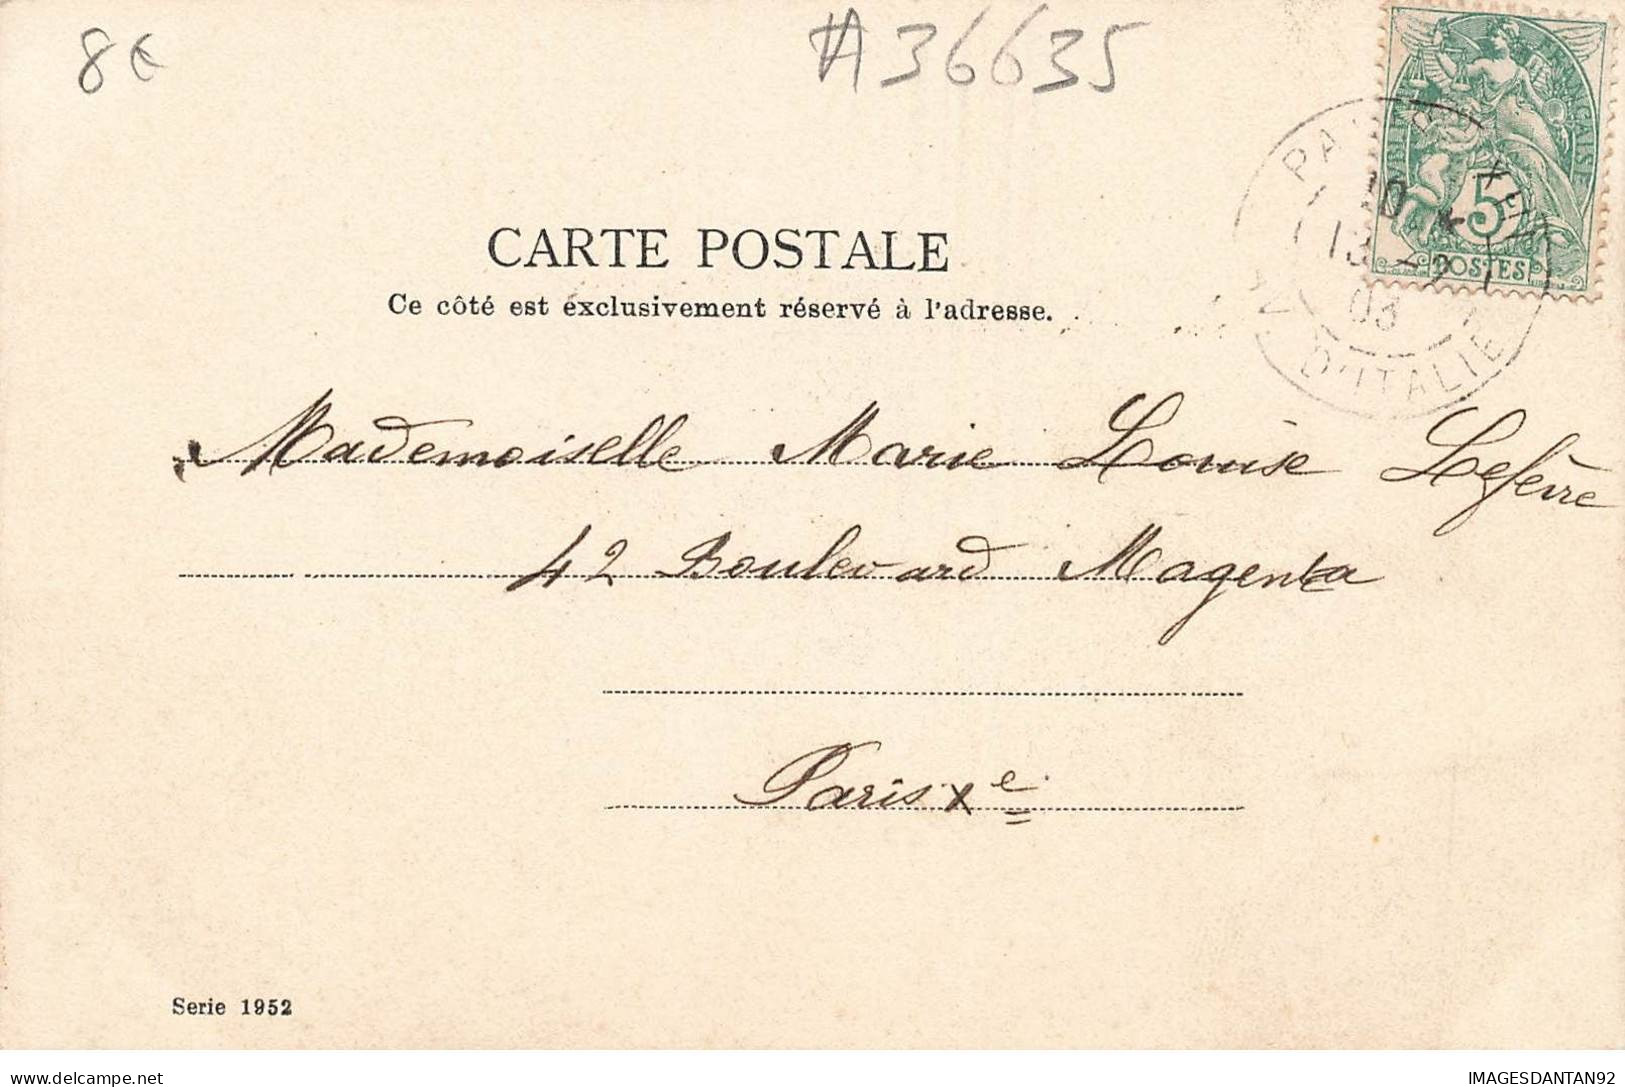 8€
#36635
RÉPUBLIQUE FRANÇAISE
5
POSTES
PARIS
10
13
03
D'ITALIE
CARTE POSTALE
Ce côté est exclusivement réservé à l'adresse.
Mademoiselle Marie Louise Lefèvre
42 Boulevard Magenta
Paris Xe
Serie 1952
delcampe.net
IMAGESDANTAN92